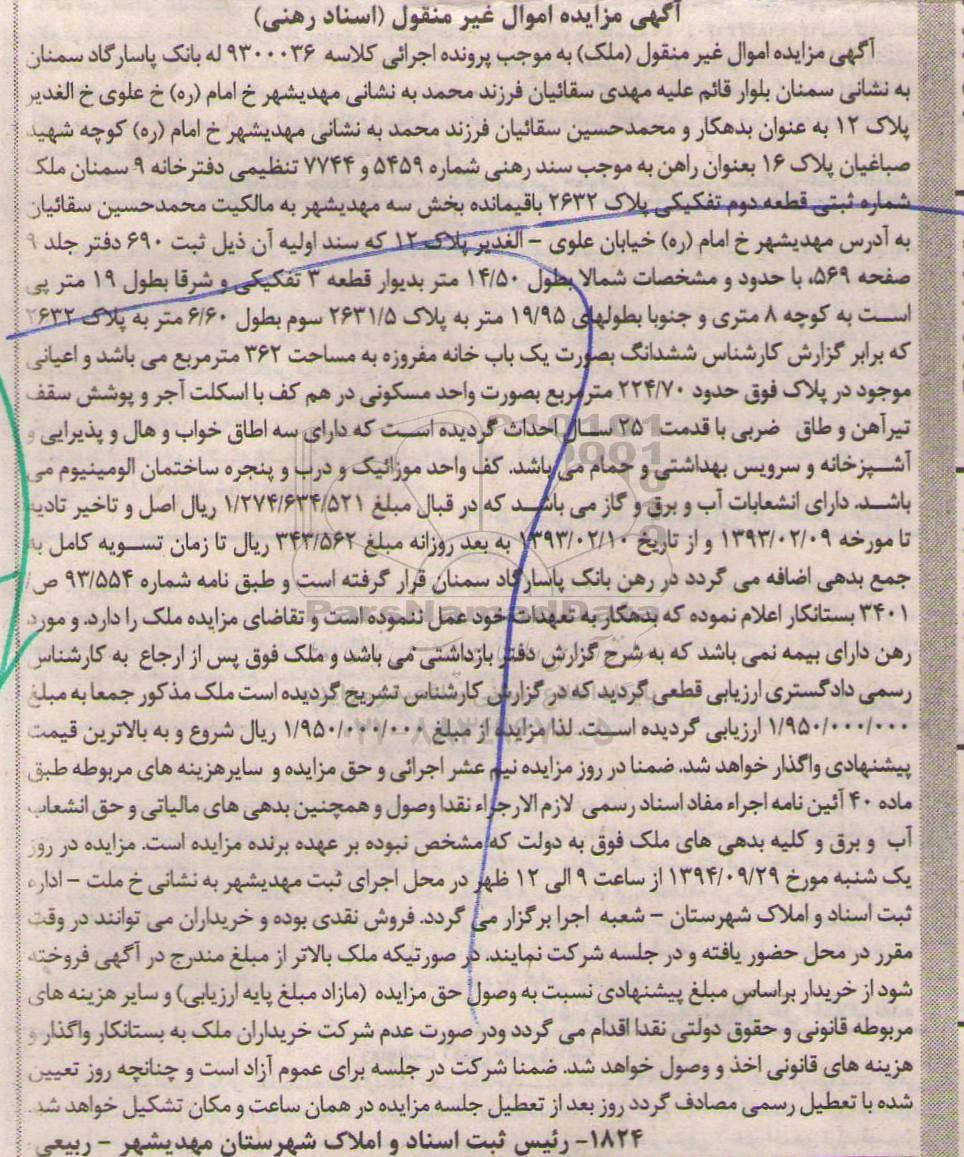 آگهی مزایده اموال غیر منقول (اسناد رهنی)
آگهی مزایده اموال غیر منقول (ملک) به موجب پرونده اجرائی کلاسه ۹۳۰۰۰۳۶ له بانک پاسارگاد سمنان
به نشانی سمنان بلوار قائم علیه مهدی سقائیان فرزند محمد به نشانی مهدیشهر خ امام (ره) خ علوی خ الغدیر
پلاک ۱۲ به عنوان بدهکار و محمدحسین سقائیان فرزند محمد به نشانی مهدیشهر خ امام (ره) کوچه شهید
صباغیان پلاک ۱۶ بعنوان راهن به موجب سند رهنی شماره ۵۴۵۹ و ۷۷۴۴ تنظیمی دفترخانه ۹ سمنان ملک
شماره ثبتی قطعه دوم تفکیکی پلاک ۲۶۳۲ باقیمانده بخش سه مهدیشهر به مالکیت محمدحسین سقائیان
به آدرس مهدیشهر خ امام (ره) خیابان علوی – الغدیر پلاک ۱۲ که سند اولیه آن ذیل ثبت ۶۹۰ دفتر جلد ۹
صفحه ۵۶۹، با حدود و مشخصات شمالا بطول ۱۴/۵۰ متر بدیوار قطعه ۳ تفکیکی و شرقا بطول ۱۹ متر پی
است به کوچه ۸ متری و جنوبا بطولهای ۱۹/۹۵ متر به پلاک ۲۶۳۱/۵ سوم بطول ۶/۶۰ متر به پلاک ۲۶۳۲
که برابر گزارش کارشناس ششدانگ بصورت یک باب خانه مفروزه به مساحت ۳۶۲ مترمربع می باشد و اعیانی
موجود در پلاک فوق حدود ۲۲۴/۷۰ مترمربع بصورت واحد مسکونی در هم کف با اسکلت آجر و پوشش سقف
تیرآهن و طاق ضربی با قدمت ۲۵ سال احداث گردیده است که دارای سه اطاق خواب و هال و پذیرایی و
آشپزخانه و سرویس بهداشتی و حمام می باشد. کف واحد موزائیک و درب و پنجره ساختمان الومینیوم می
باشد. دارای انشعابات آب و برق و گاز می باشد که در قبال مبلغ ۱/۲۷۴/۶۳۴/۵۲۱ ریال اصل و تاخیر تادیه
تا مورخه ۱۳۹۳/۰۲/۰۹ و از تاریخ ۱۳۹۳/۰۲/۱۰ به بعد روزانه مبلغ ۳۴۳/۵۶۲ ریال تا زمان تسویه کامل به
جمع بدهی اضافه می گردد در رهن بانک پاسارگاد سمنان قرار گرفته است و طبق نامه شماره ۹۳/۵۵۴ ص/
۳۴۰۱ بستانکار اعلام نموده که بدهکار به تعهدات خود عمل ننموده است و تقاضای مزایده ملک را دارد. و مورد
رهن دارای بیمه نمی باشد که به شرح گزارش دفتر بازداشتی می باشد و ملک فوق پس از ارجاع به کارشناس
رسمی دادگستری ارزیابی قطعی گردید که در گزارش کارشناس تشریح گردیده است ملک مذکور جمعا به مبلغ
۱/۹۵۰/۰۰۰/۰۰۰ ارزیابی گردیده است. لذا مزایده از مبلغ ۱/۹۵۰/۰۰۰/۰۰۰ ریال شروع و به بالاترین قیمت
پیشنهادی واگذار خواهد شد. ضمنا در روز مزایده نیم عشر اجرائی و حق مزایده و سایرهزینه های مربوطه طبق
ماده ۴۰ آئین نامه اجراء مفاد اسناد رسمی لازم الارجراء نقدا وصول و همچنین بدهی های مالیاتی و حق انشعاب
آب و برق و کلیه بدهی های ملک فوق به دولت که مشخص نبوده بر عهده برنده مزایده است. مزایده در روز
یک شنبه مورخ ۱۳۹۴/۰۹/۲۹ از ساعت ۹ الی ۱۲ ظهر در محل اجرای ثبت مهدیشهر به نشانی خ ملت – اداره
ثبت اسناد و املاک شهرستان – شعبه اجرا برگزار می گردد. فروش نقدی بوده و خریداران می توانند در وقت
مقرر در محل حضور یافته و در جلسه شرکت نمایند. در صورتیکه ملک بالاتر از مبلغ مندرج در آگهی فروخته
شود از خریدار براساس مبلغ پیشنهادی نسبت به وصول حق مزایده (مازاد مبلغ پایه ارزیابی) و سایر هزینه های
مربوطه قانونی و حقوق دولتی نقدا اقدام می گردد ودر صورت عدم شرکت خریداران ملک به بستانکار واگذار و
هزینه های قانونی اخذ و وصول خواهد شد. ضمنا شرکت در جلسه برای عموم آزاد است و چنانچه روز تعیین
شده با تعطیل رسمی مصادف گردد روز بعد از تعطیل جلسه مزایده در همان ساعت و مکان تشکیل خواهد شد.
۱۸۲۴- رئیس ثبت اسناد و املاک شهرستان مهدیشهر – ربیعی
ParsNamadData